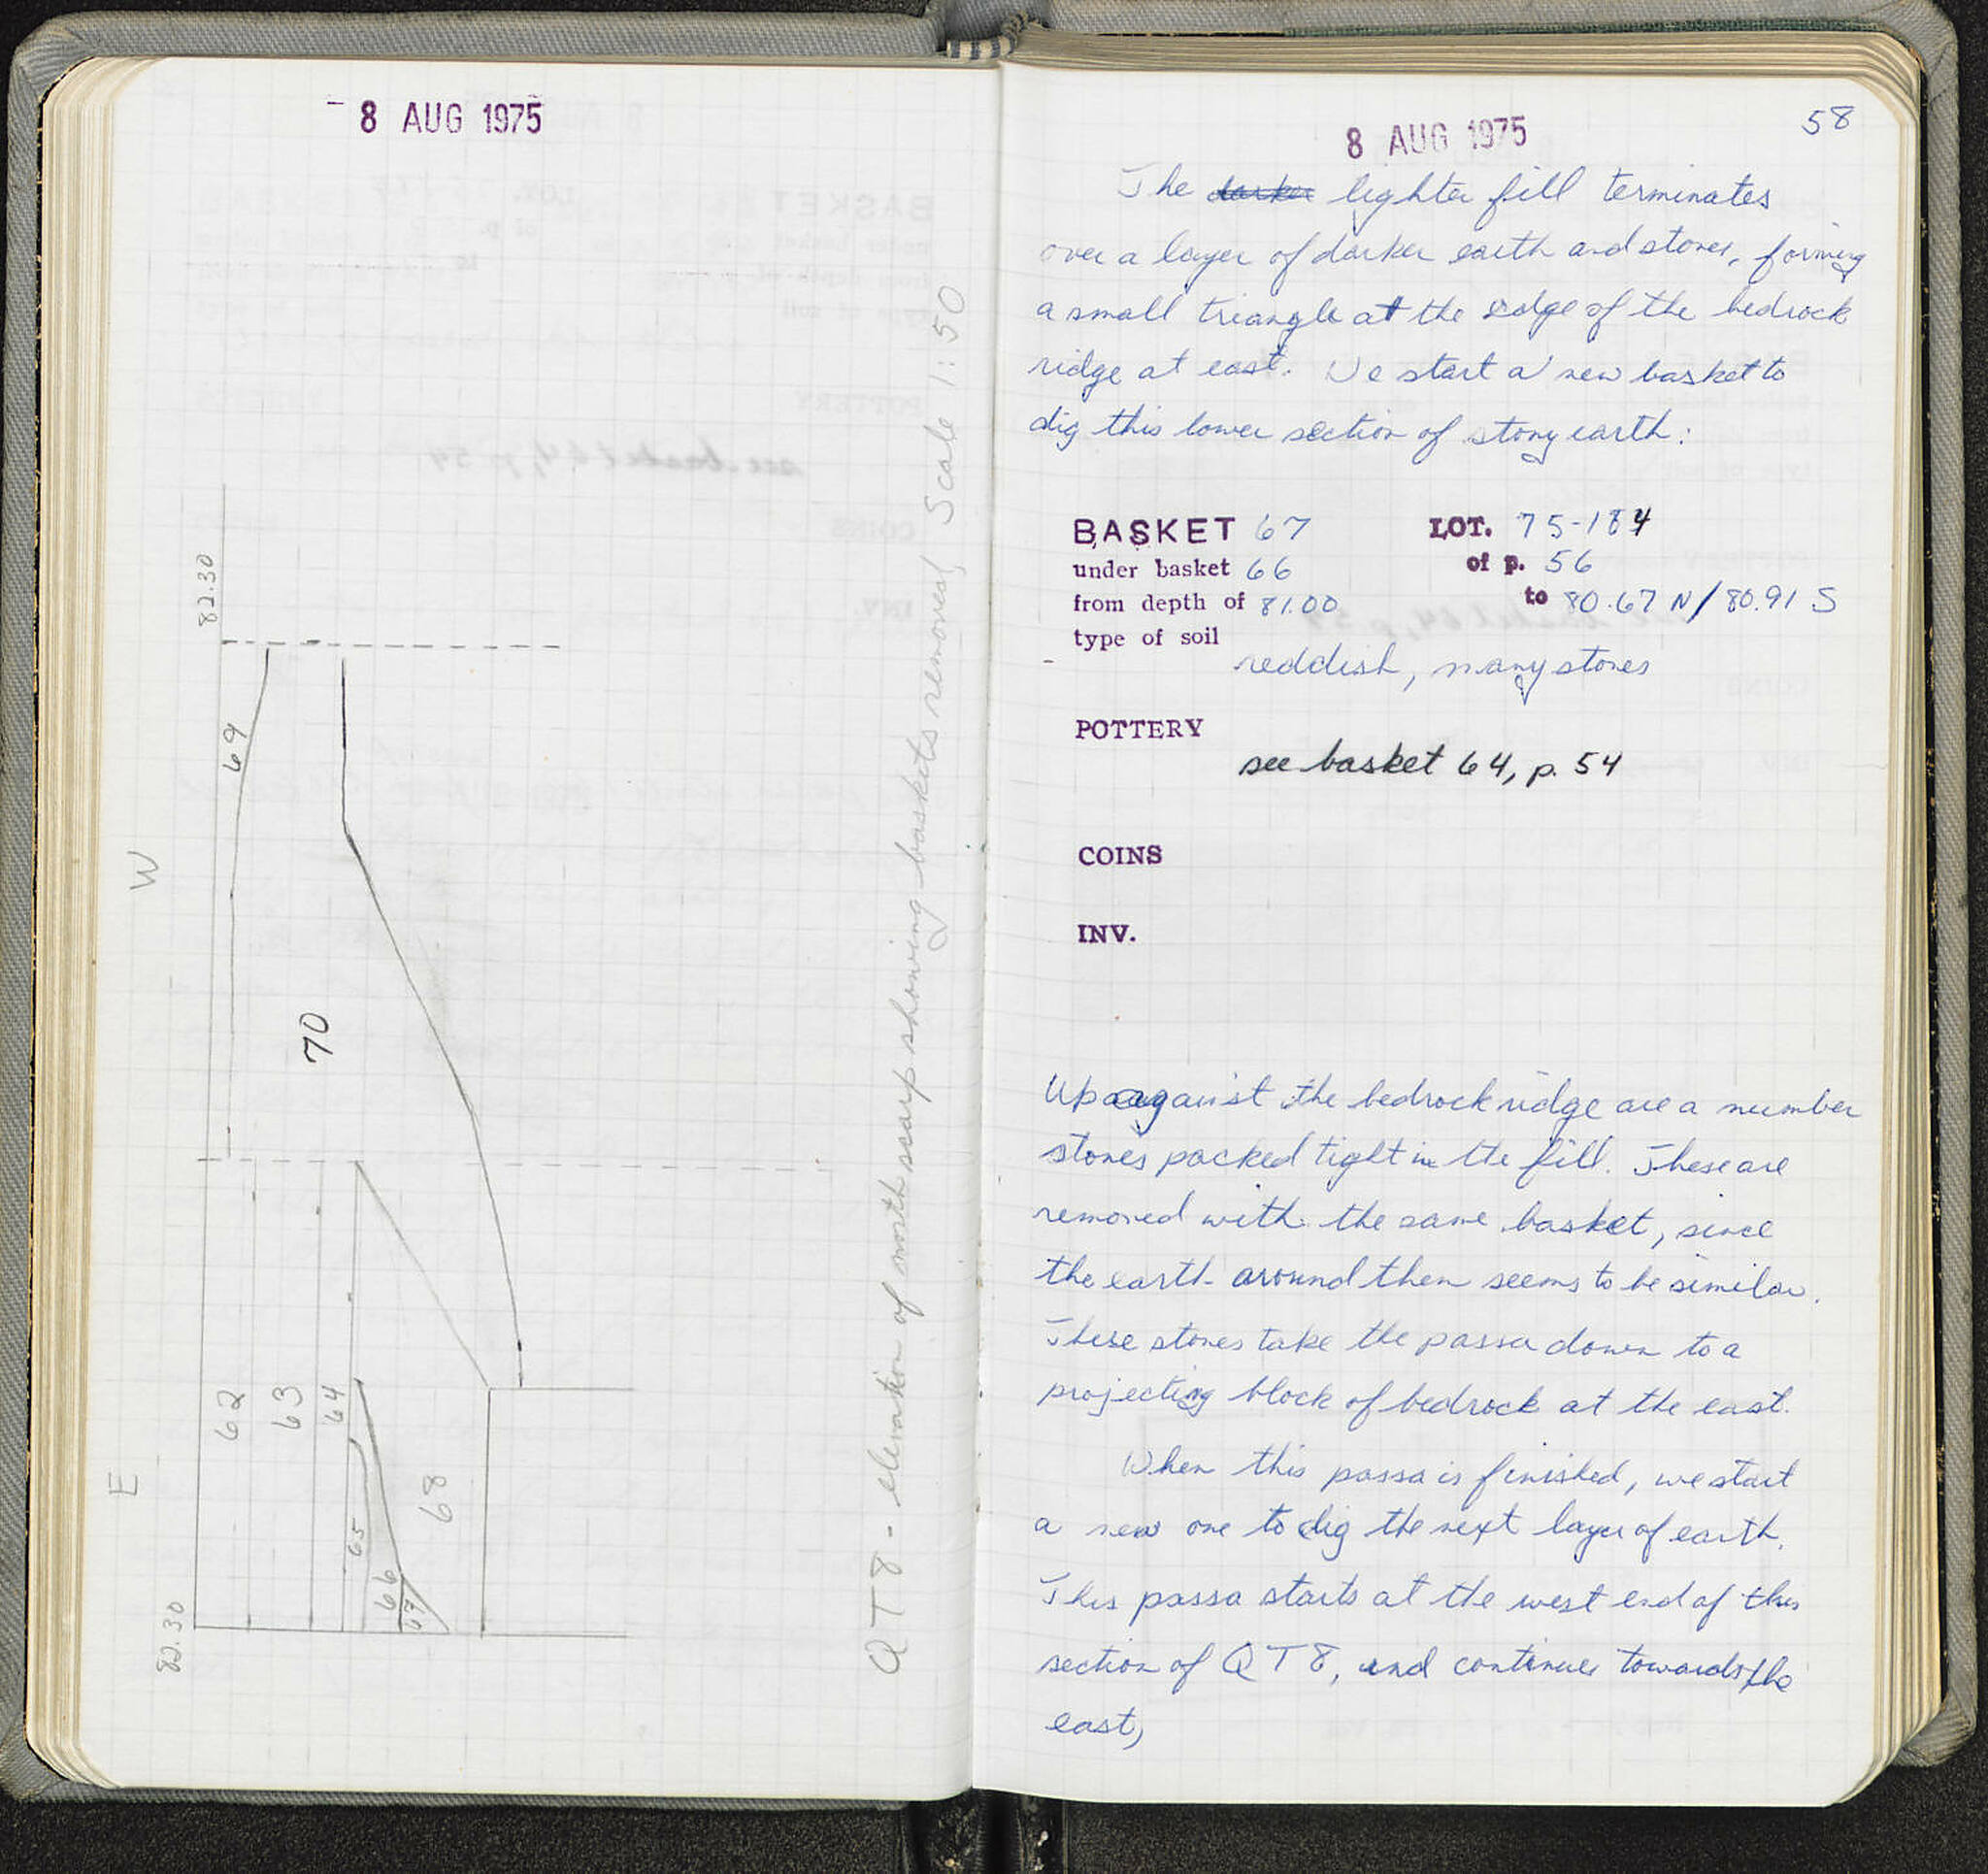 8 AUG 1975
82.30
69
W
70
62
63
64
E
65
66
67
68
82.30
QT8 - elevation of north scarp showing baskets removed, Scale 1:50
58
8 AUG 1975
The darker lighter fill terminates
over a layer of darker earth and stones, forming
a small triangle at the edge of the bedrock
ridge at east. We start a new basket to
dig this lower section of stony earth:
BASKET 67 LOT. 75-184
under basket 66 of p. 56
from depth of 81.00 to 80.67 N/80.91 S
type of soil
reddish, many stones
POTTERY
see basket 64, p. 54
COINS
INV.
Up against the bedrock ridge are a number
stones packed tight in the fill. These are
removed with the same basket, since
the earth around them seems to be similar.
These stones take the passa down to a
projecting block of bedrock at the east.
When this passa is finished, we start
a new one to dig the next layer of earth.
This passa starts at the west end of this
section of QT8, and continues towards the
east,